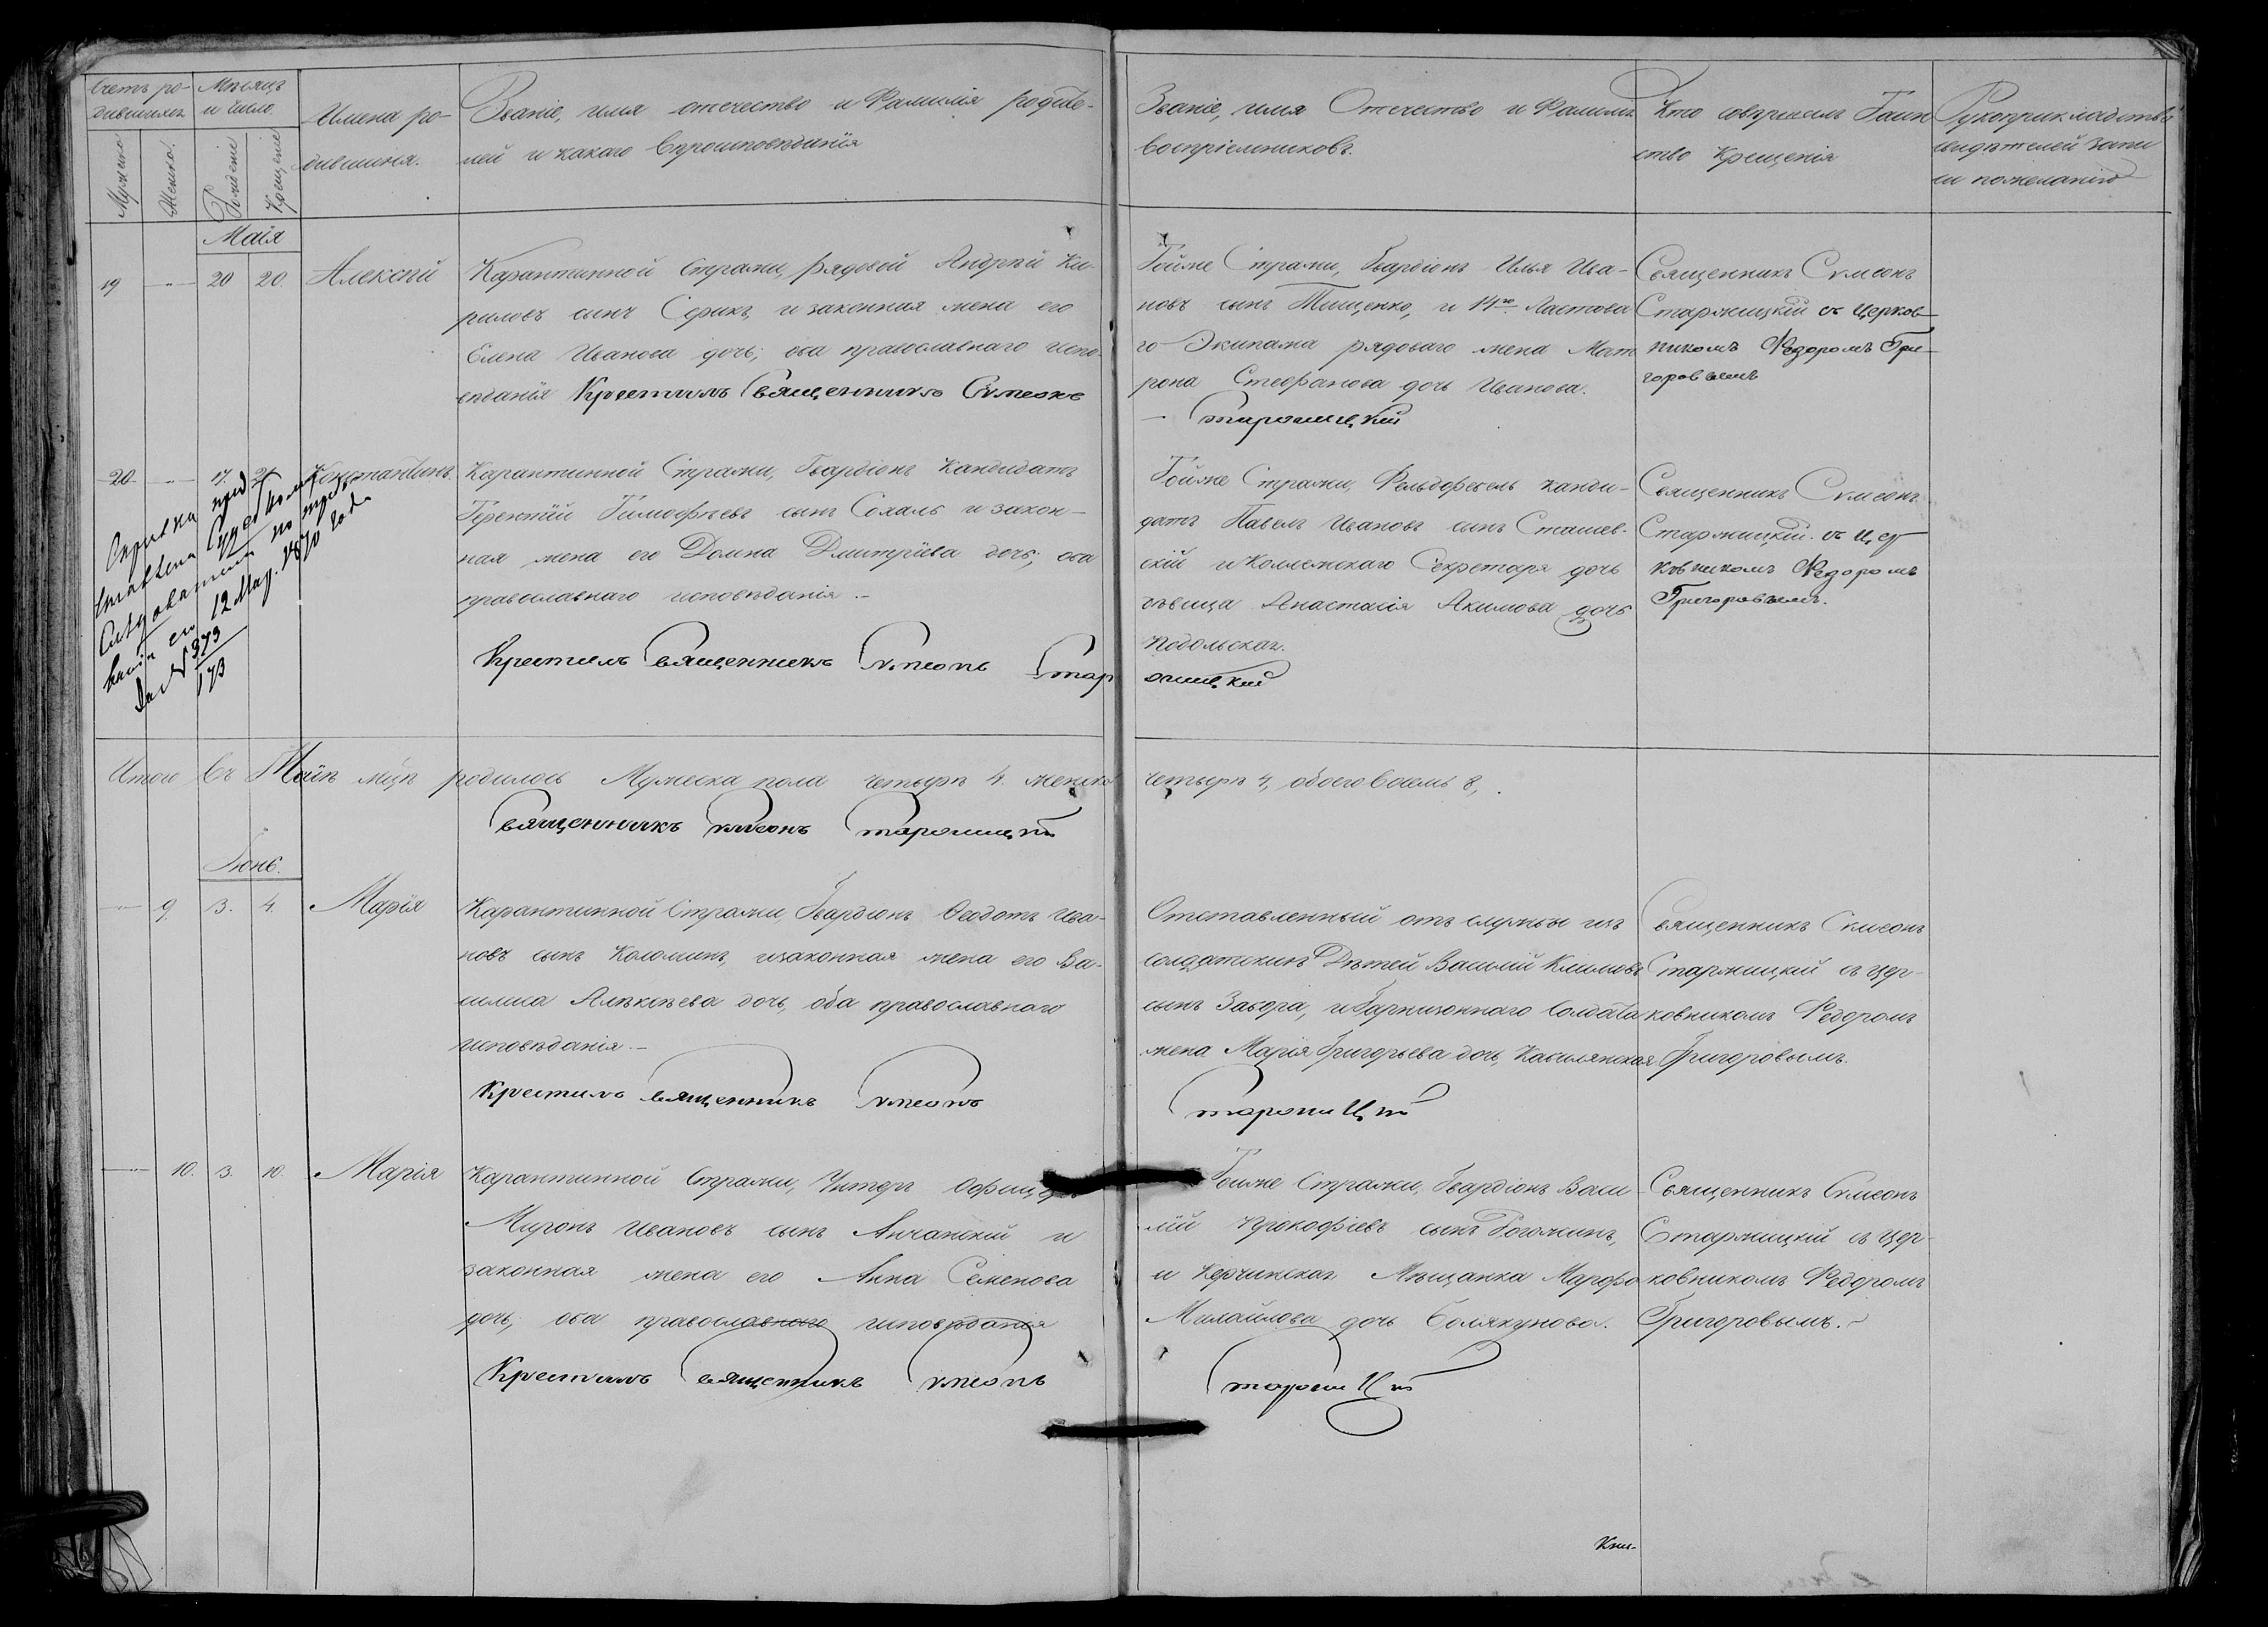 Счетъ ро-
дившихся
Мѣсяцъ
и число.
Мужеска
Женска.
Рожденіе
Крещеніе
Имена ро-
дившихся.
Званіе, имя отечество и Фамилія родите-
лей и какаго Вѣроисповѣданія
Званіе, имя Отечество и Фамилія
Воспріемниковъ.
Кто совершалъ Таин
ство Крещенія
Рукоприкладство
свидѣтелей запи
си по желанію
Маія
19 20 20. Алексѣй
Карантинной Стражи, рядовой Андрѣй Ки-
риловъ сынъ Серикъ, и законная жена его
Елена Иванова дочь; оба православнаго испо-
вѣданія Крестилъ Священникъ Сумеонъ
Тойже Стражи, Гвардіонъ Илья Ива-
новъ сынъ Тищенко, и 14го Ластова
го Экипажа рядоваго жена Мат
рона Стефанова дочь Иванова.
Старжицкій
Священникъ Сумеонъ
Старжицкій съ Церков
никомъ Федоромъ Гри-
горовымъ
20. 17. 21 Константинъ.
Карантинной Стражи, Гвардіонъ Кандидатъ
Терентій Тимофѣевъ сынъ Сохаль и закон-
ная жена его Домна Дмитріева дочь; оба
православнаго исповѣданія.-
Крестилъ Священникъ Сумеонъ Стар
жицкій
Тойже Стражи, Фельдфебель канди-
датъ Павелъ Ивановъ сынъ Сташев-
скій и Коллежскаго Секретаря дочь
дѣвица Анастасія Акимова дочь
Подольская.
Священникъ Сумеонъ
Старжицкій съ Цер
ковникомъ Федоромъ
Григоровымъ.
Справка пред
ставлена Судебному
Слѣдователю по требо
ванію его 12 Мар. 1870 года
за N 379
173
Итого Въ Маіѣ мцѣ родилось Мужеска пола четырѣ 4. женска четырѣ 4, обоего Восемь 8,
Священникъ Сумеонъ Старжицкій
Іюнь.
9 3. 4. Марія
Карантинной Стражи Гвардіонъ Феодотъ Ива-
новъ сынъ Коломинъ, и законная жена его Ва-
силиса Алексѣева дочь, оба православнаго
исповѣданія.-
Крестилъ Священникъ Сумеонъ
Старжицкій
Отставленный отъ службы изъ
солдатскихъ Дѣтей Василій Климовъ
сынъ Забора, и Гарнизоннаго Солдата
жена Марія Григорьева дочь,
Священникъ Сумеонъ
Старжицкій съ цер-
ковникомъ Федоромъ
Григоровымъ.
10. 3. 10. Марія
Карантинной Стражи, Унтеръ Офицеръ
Миронъ Ивановъ сынъ Анчанскій и
законная жена его Анна Семенова
дочь; оба православнаго исповѣданія
Крестилъ Священникъ Сумеонъ
Старжицкій
Тойже Стражи, Гвардіонъ Васи-
лій Прокофіевъ сынъ Рогожинъ,
и Керчинская Мѣщанка Марфа
Михайлова дочь Болякунова.
Священникъ Сумеонъ
Старжицкій съ цер-
ковникомъ Федоромъ
Григоровымъ.
Кни-